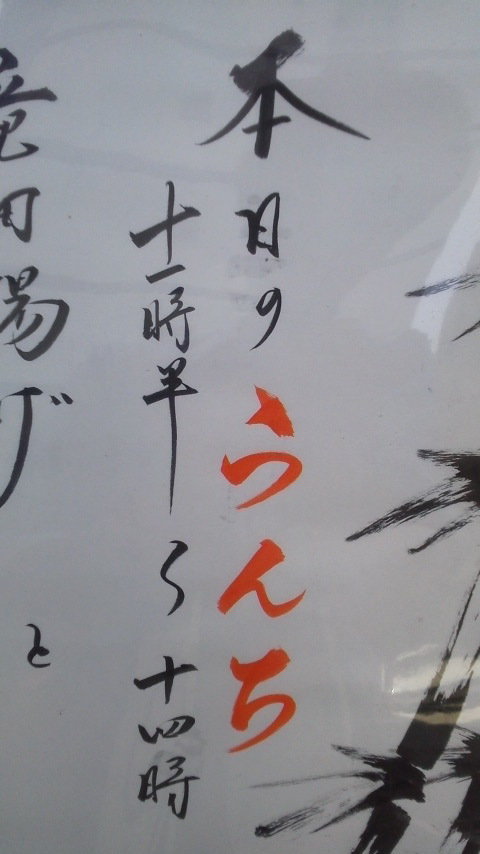 本日のうんち
十一時半～十四時
竜田揚げ と